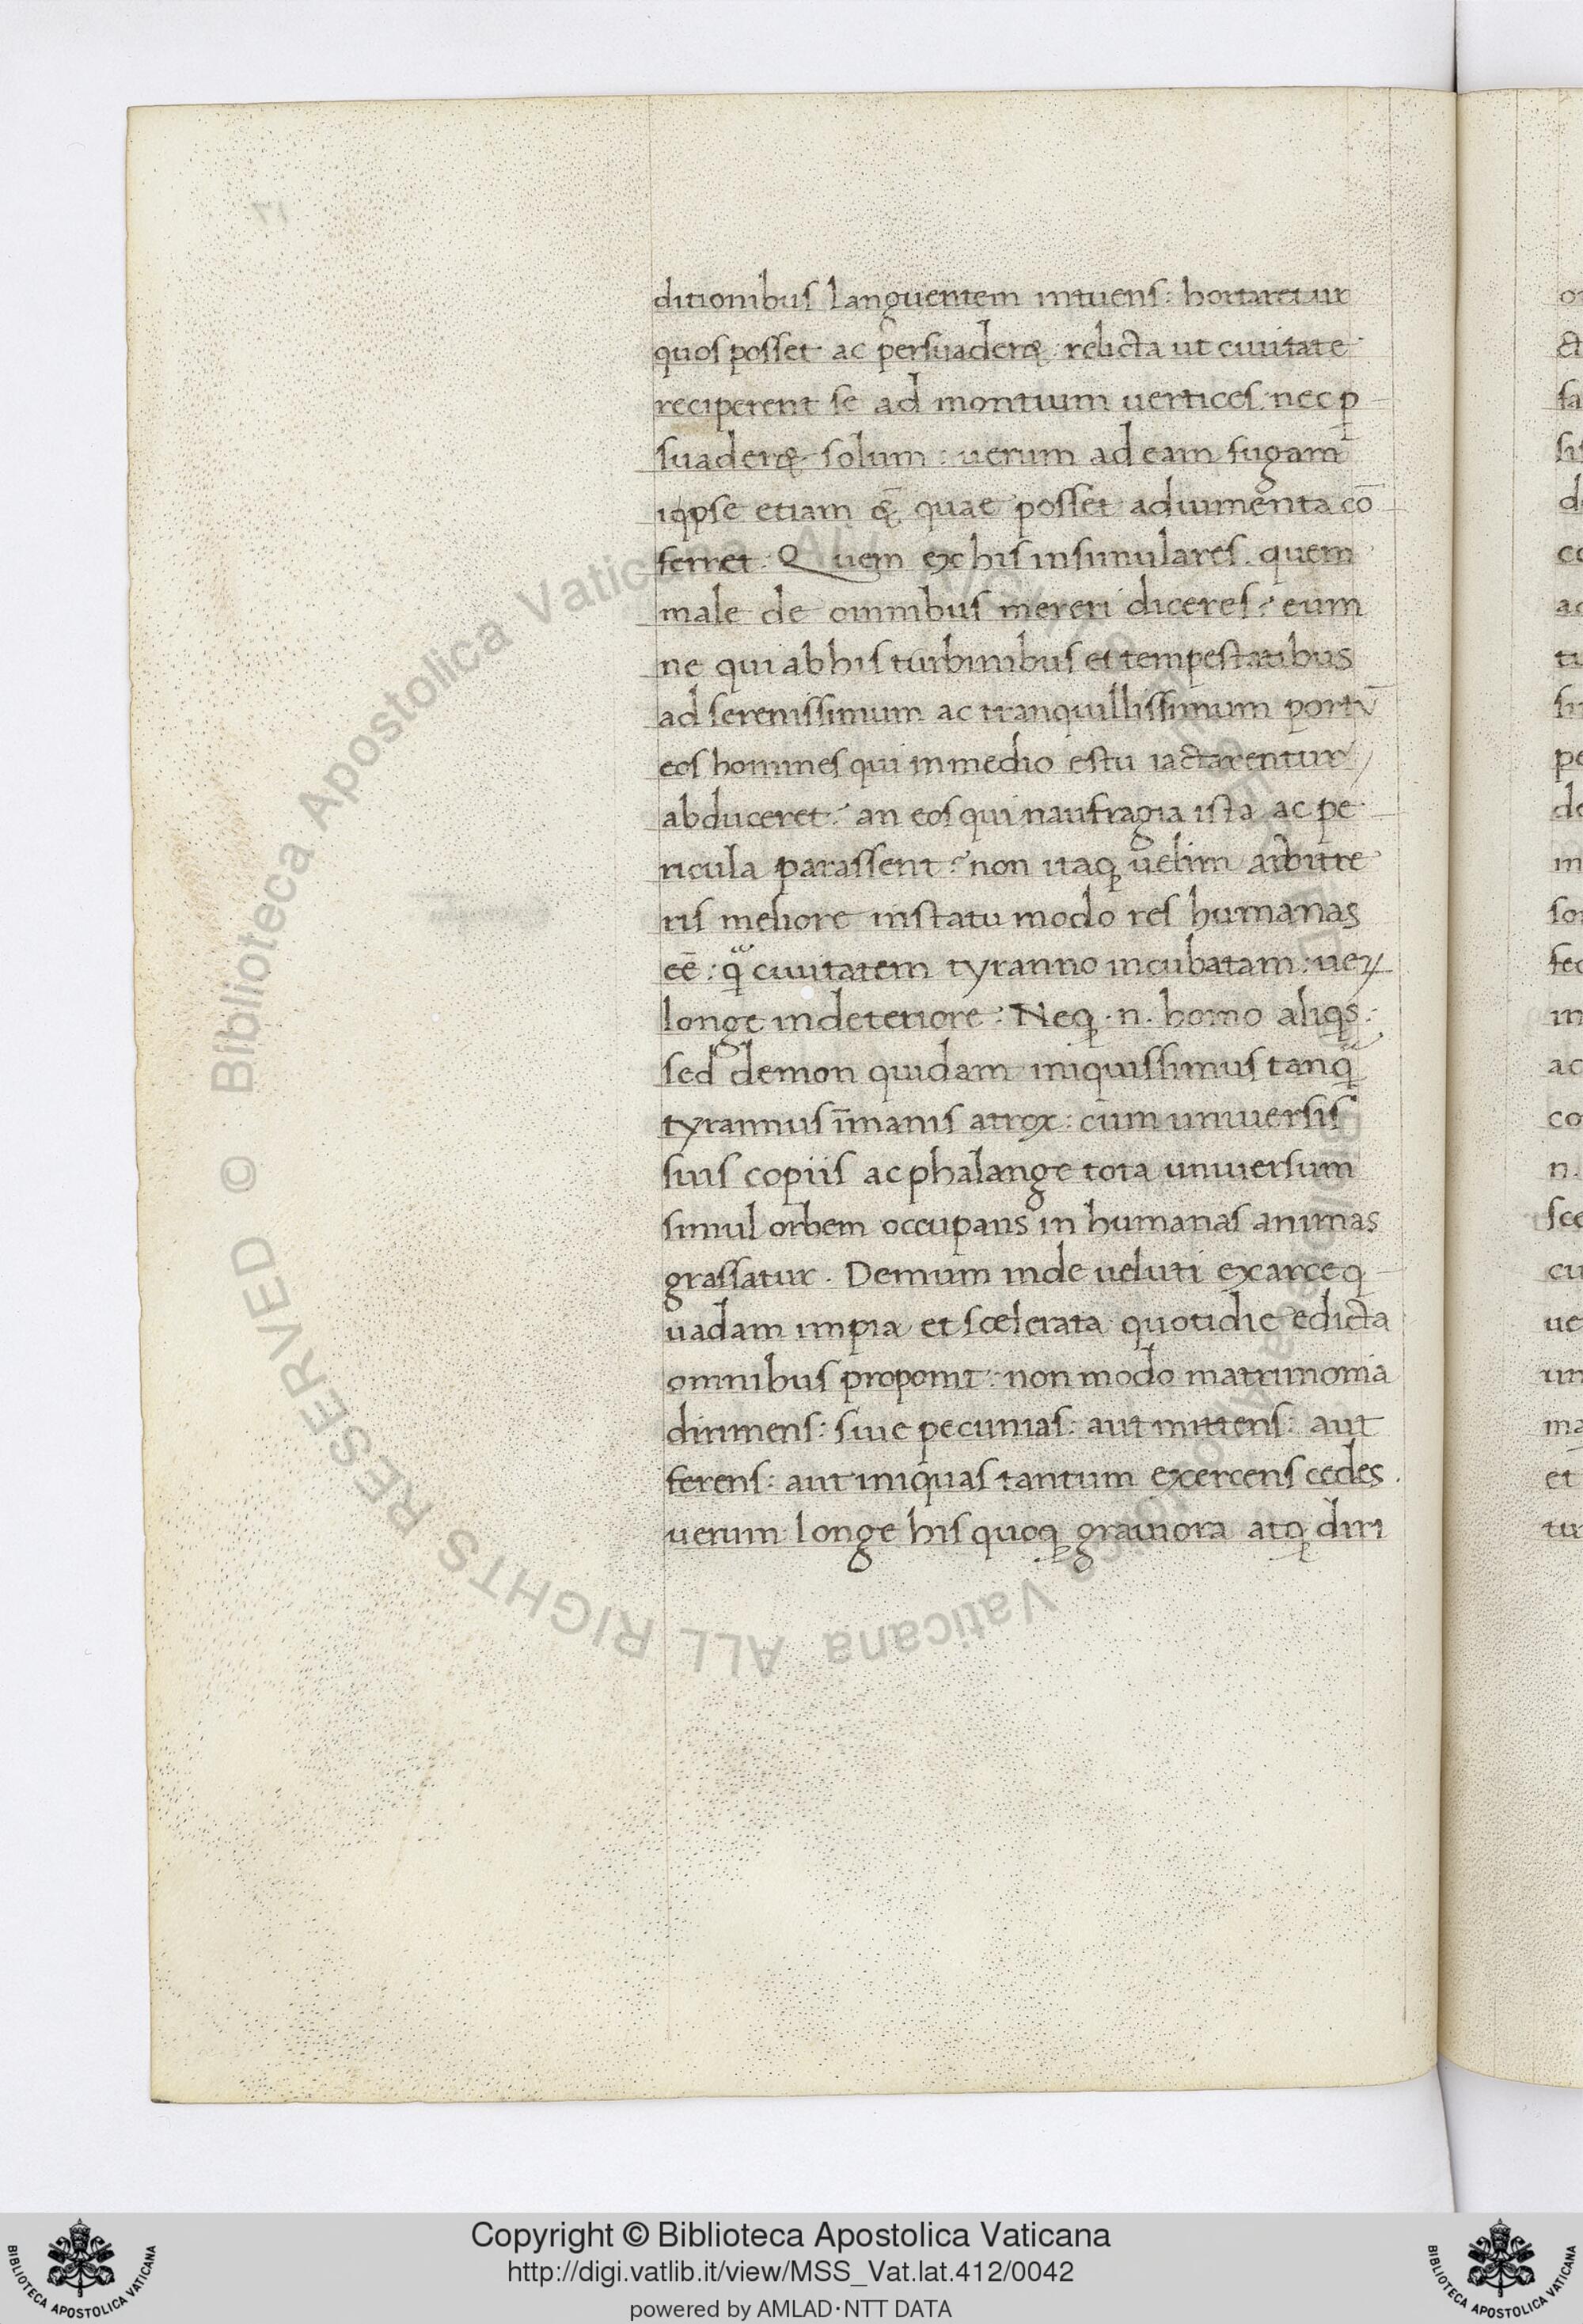 ditionibus languentem intuens: hortaretur
quos posset ac persuaderet: relicta ut ciuitate
reciperent se ad montium uertices: nec p̱
suaderet solum: uerum ad eam fugam
ipse etiam quae posset adiumenta cō
ferret. Quem ex his insimulares. quem
male de omnibus mereri diceres? eum
ne qui ab his turbinibus et tempestatibus
ad serenissimum ac tranquillissimum portū
eos homines qui in medio estu iactarentur
abduceret? an eos qui naufragia ista ac pe
ricula parassent? non itaq; uelim arbitre
ris meliore in statu modo res humanas
eē: q̄ ciuitatem tyranno incubatam: ueꝝ
longe in deteriore. Neq; .n. homo aliqs:
sed demon quidam iniquissimus tanq̄
tyrannus īmanis atrox: cum uniuersis
suis copiis ac phalange tota uniuersum
simul orbem occupans in humanas animas
grassatur. Demum inde ueluti ex arce q
uadam impia et scelerata quotidie edicta
omnibus proponit: non modo matrimonia
dirimens: siue pecunias: aut mittens: aut
ferens: aut iniquas tantum exercens cedes.
uerum longe his quoq; grauiora atq; diri
Copyright © Biblioteca Apostolica Vaticana
http://digi.vatlib.it/view/MSS_Vat.lat.412/0042
powered by AMLAD·NTT DATA
BIBLIOTECA APOSTOLICA VATICANA
BIBLIOTECA APOSTOLICA VATICANA
© Biblioteca Apostolica Vaticana ALL RIGHTS RESERVED